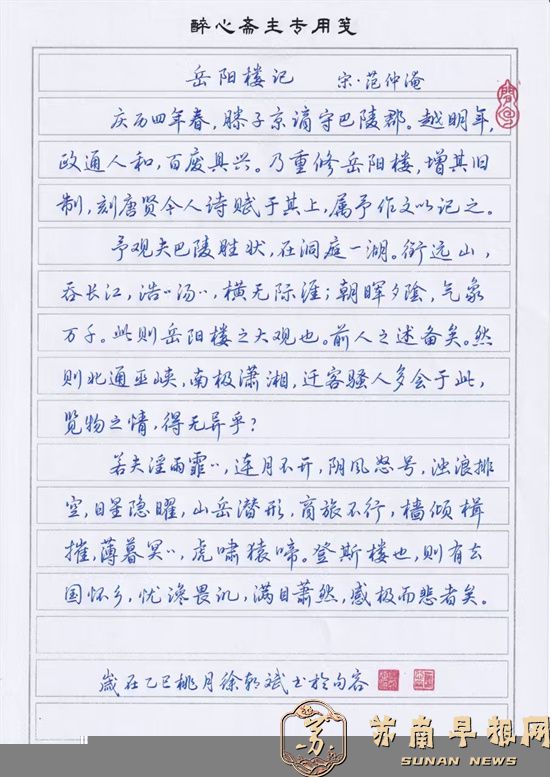 醉心斋主专用笺
岳阳楼记 宋·范仲淹
庆历四年春，滕子京谪守巴陵郡。越明年，
政通人和，百废具兴。乃重修岳阳楼，增其旧
制，刻唐贤今人诗赋于其上，属予作文以记之。
予观夫巴陵胜状，在洞庭一湖。衔远山，
吞长江，浩〃汤〃，横无际涯；朝晖夕阴，气象
万千。此则岳阳楼之大观也。前人之述备矣。然
则北通巫峡，南极潇湘，迁客骚人多会于此，
览物之情，得无异乎？
若夫淫雨霏〃，连月不开，阴风怒号，浊浪排
空，日星隐曜，山岳潜形，商旅不行，樯倾楫
摧，薄暮冥〃，虎啸猿啼。登斯楼也，则有去
国怀乡，忧谗畏讥，满目萧然，感极而悲者矣。
岁在乙巳桃月徐 斌书于句容
苏南早报网
SUNAN NEWS